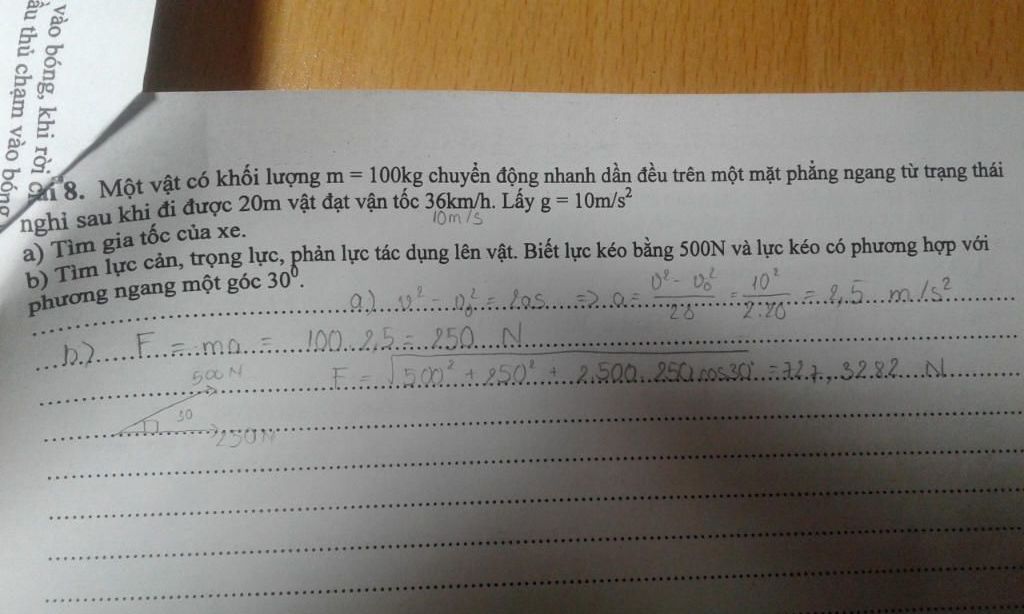 vào bóng, khi rời
ầu thủ chạm vào bóng
8. Một vật có khối lượng m = 100kg chuyển động nhanh dần đều trên một mặt phẳng ngang từ trạng thái
nghỉ sau khi đi được 20m vật đạt vận tốc 36km/h. Lấy g = 10m/s²
10m/s
a) Tìm gia tốc của xe.
b) Tìm lực cản, trọng lực, phản lực tác dụng lên vật. Biết lực kéo bằng 500N và lực kéo có phương hợp với
phương ngang một góc 30⁰.
a) v² - v₀² = 2as => a = (v² - v₀²)/2s = 10²/2.20 = 2,5 m/s²
b) F = ma = 100.2,5 = 250 N
500N F = √(500² + 250² + 2.500.250.cos30) = 727,3282 N
30
250N